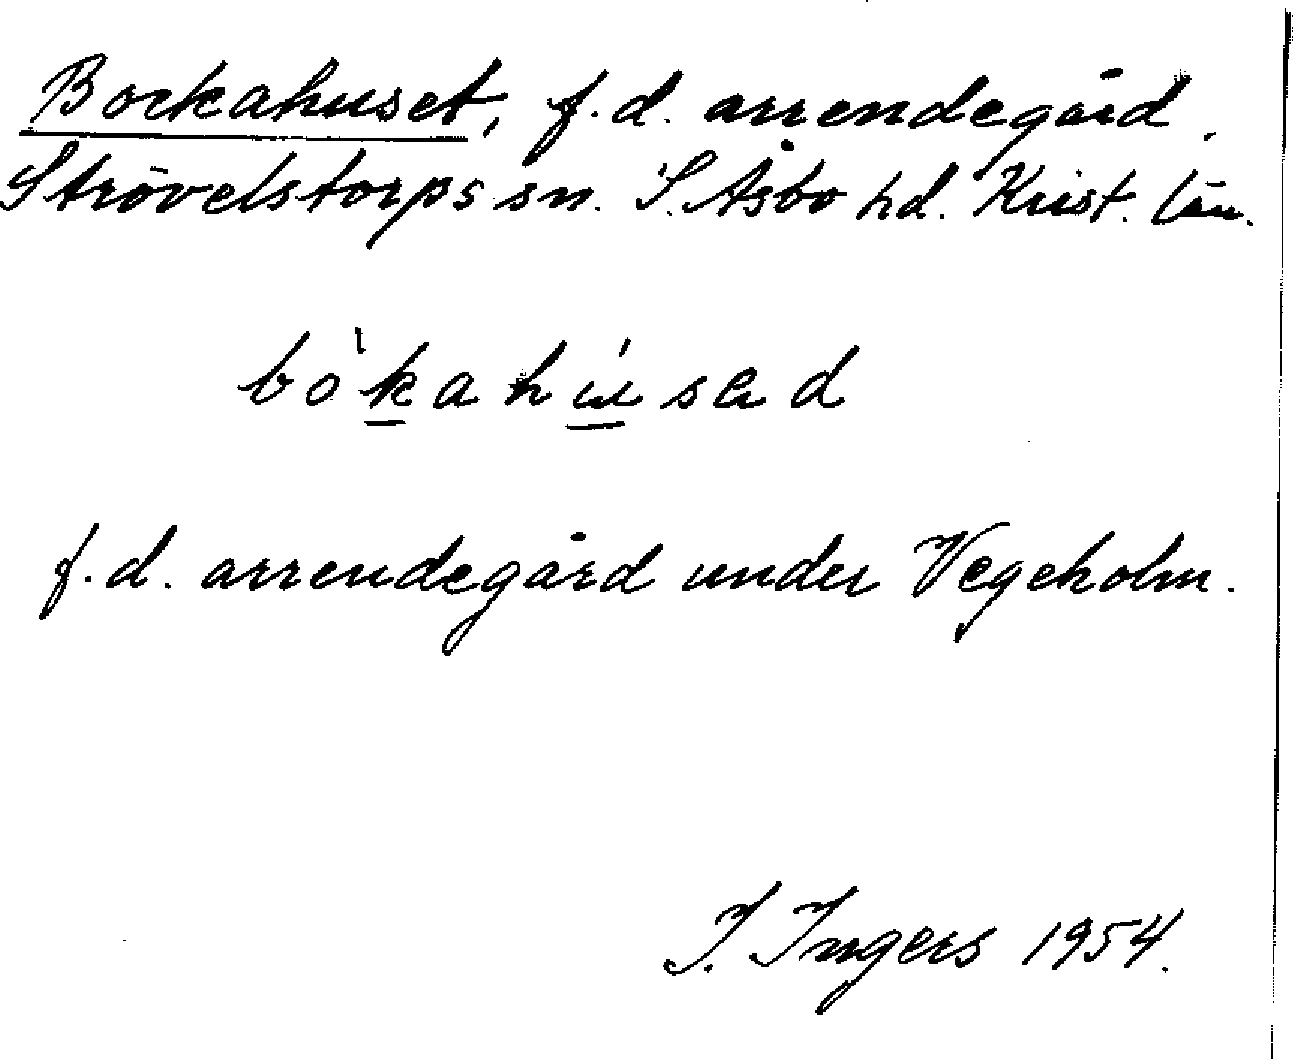 Bockahuset, f.d. arrendegård.
Strövelstorps sn. S. Åsbo hd. Krist. län.
bò̱kahúsad
f.d. arrendegård under Vegeholm.
I. Ingers 1954.